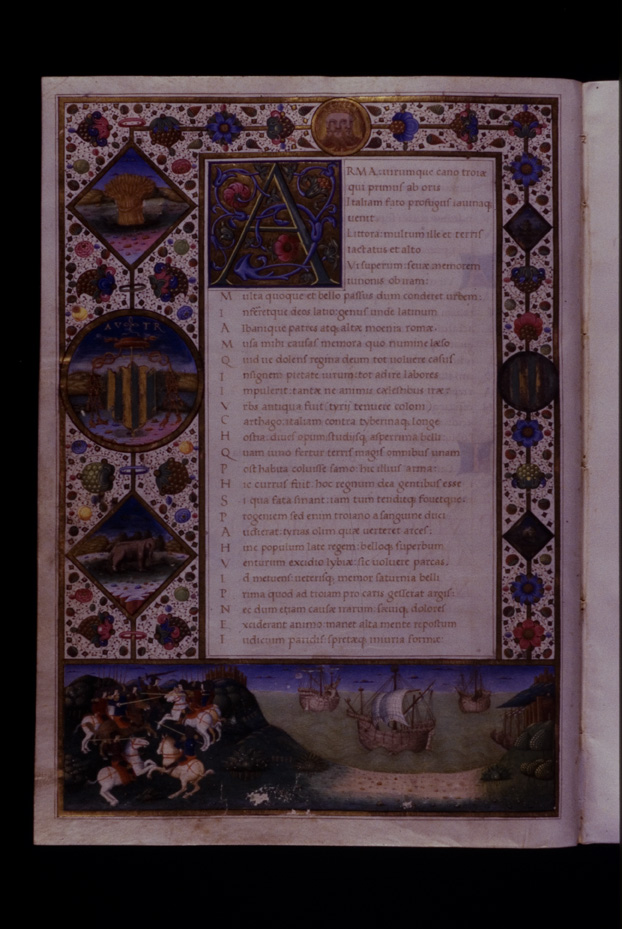 ARMA uirumque cano troiæ
qui primus ab oris
Italiam fato profugus lauinaq;
uenit
Littora: multum ille et terris
iactatus et alto
Vi superum: seuæ memorem
iunonis ob iram:
Multa quoque et bello passus dum conderet urbem:
Inferretque deos latio: genus unde latinum
Albanique patres atq; altæ moenia romæ
Musa mihi causas memora quo numine læso
Quid ue dolens regina deum: tot uoluere casus
Insignem pietate uirum: tot adire labores
Impulerit: tantæ ne animis cælestibus iræ?
Vrbs antiqua fuit: tyrij tenuere coloni
Carthago: italiam contra tyberinaq; longe
Hostia: diues opum: studijsq; asperrima belli
Quam iuno fertur terris magis omnibus unam
Post habita coluisse samo: hic illius arma:
Hic currus fuit: hoc regnum dea gentibus esse
Si qua fata sinant: iam tum tenditq; fouetque:
Progeniem sed enim troiano a sanguine duci
Audierat: tyrias olim quæ uerteret arces:
Hinc populum late regem: belloq; superbum
Venturum excidio lybiæ: sic uoluere parcas.
Id metuens: ueterisq; memor saturnia belli
Prima quod ad troiam pro caris gesserat argis:
Nec dum etiam causæ irarum: sæuiq; dolores
Exciderant animo: manet alta mente repostum
Iudicium paridis: spretæq; iniuria formæ: